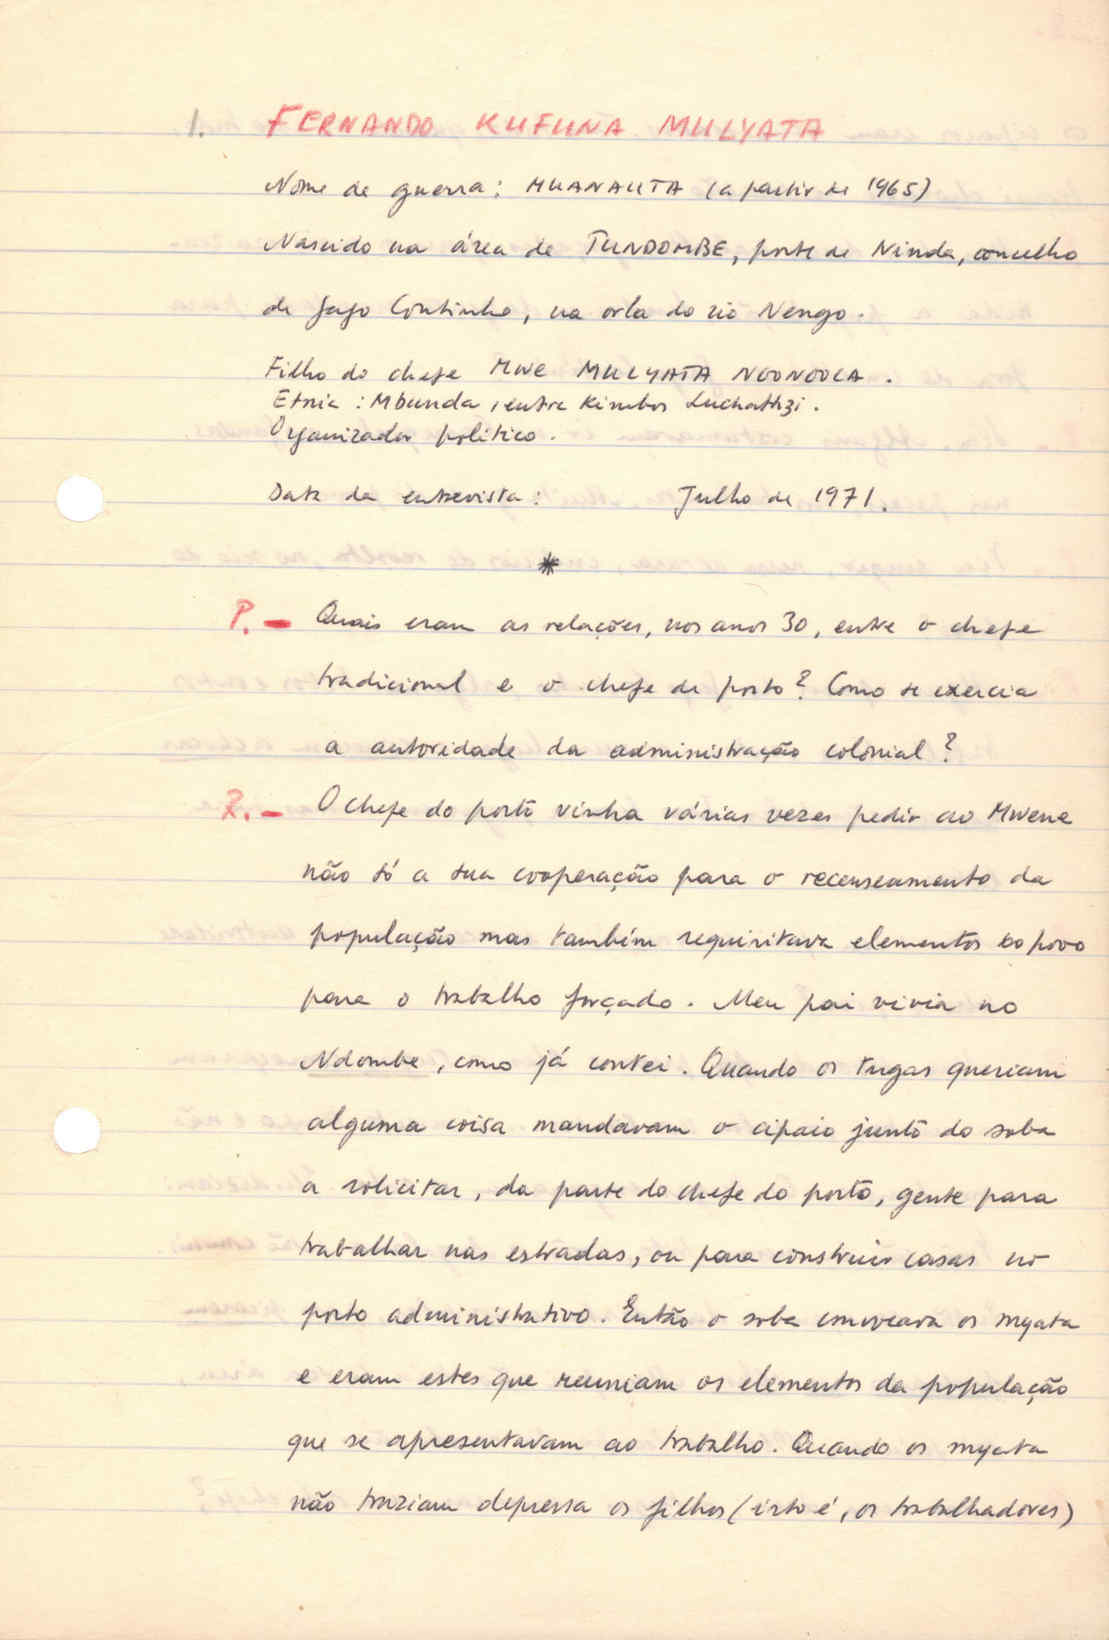 1. FERNANDO KUFUNA MULYATA
Nome de guerra: MUANAUTA (a partir de 1965)
Nascido na área de TUNDOMBE, posto de Ninda, concelho
de Gago Coutinho, na orla do rio Nengo.
Filho do chefe Mwe MULYATA NDONDOLA.
Etnia: Mbunda, entre kimbos Luchathzi.
Organizador político.
Data da entrevista: Julho de 1971.
*
P. – Quais eram as relações, nos anos 30, entre o chefe
tradicional e o chefe de posto? Como se exercia
a autoridade da administração colonial?
R. – O chefe do posto vinha várias vezes pedir ao Mwene
não só a sua cooperação para o recenseamento da
população mas também requisitava elementos do povo
para o trabalho forçado. Meu pai vivia no
Ndombe, como já contei. Quando os tugas queriam
alguma coisa mandavam o cipaio junto do soba
a solicitar, da parte do chefe do posto, gente para
trabalhar nas estradas, ou para construir casas no
posto administrativo. Então o soba convocava os myata
e eram estes que reuniam os elementos da população
que se apresentavam ao trabalho. Quando os myata
não traziam depressa os filhos (isto é, os trabalhadores)